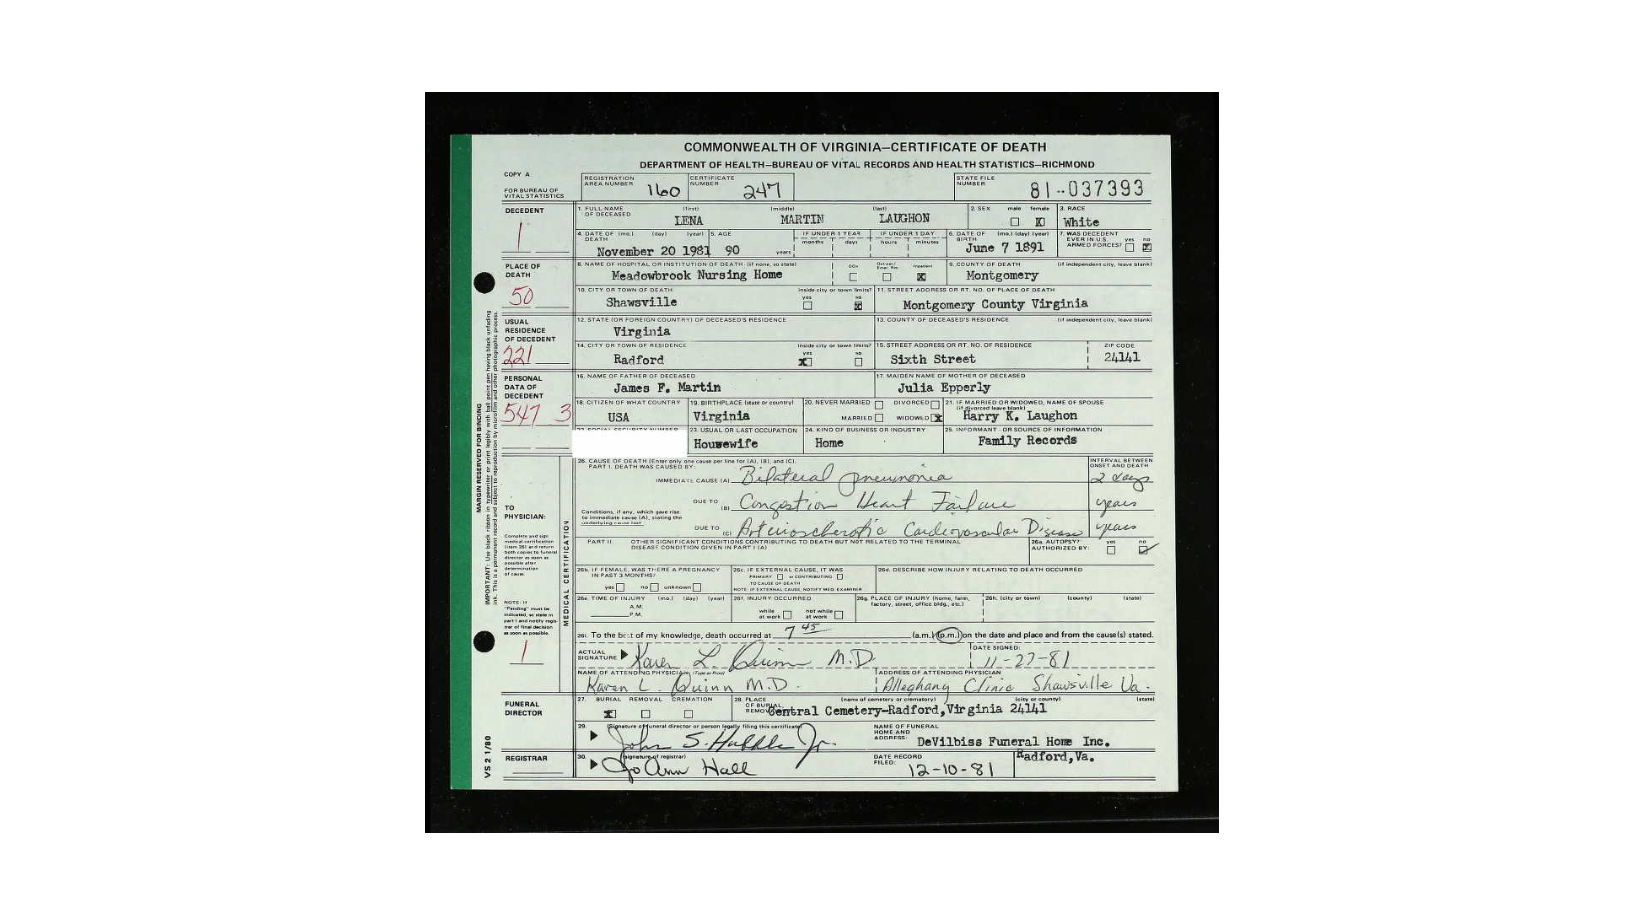 COMMONWEALTH OF VIRGINIA—CERTIFICATE OF DEATH
DEPARTMENT OF HEALTH—BUREAU OF VITAL RECORDS AND HEALTH STATISTICS—RICHMOND
COPY A
FOR BUREAU OF VITAL STATISTICS
REGISTRATION AREA NUMBER 160
CERTIFICATE NUMBER 247
STATE FILE NUMBER 81-037393
DECEDENT
1
1. FULL NAME OF DECEASED (first) (middle) (last)
LENA MARTIN LAUGHON
2. SEX male female X
3. RACE
White
4. DATE OF DEATH (mo.) (day) (year)
November 20 1981
5. AGE
90 years
IF UNDER 1 YEAR months days
IF UNDER 1 DAY hours minutes
6. DATE OF BIRTH (mo.) (day) (year)
June 7 1891
7. WAS DECEDENT EVER IN U.S. ARMED FORCES? yes no X
PLACE OF DEATH
50
8. NAME OF HOSPITAL OR INSTITUTION OF DEATH (if none, so state)
Meadowbrook Nursing Home
DOA Inpatient X
9. COUNTY OF DEATH (if independent city, leave blank)
Montgomery
10. CITY OR TOWN OF DEATH
Shawsville
inside city or town limits? yes no X
11. STREET ADDRESS OR RT. NO. OF PLACE OF DEATH
Montgomery County Virginia
USUAL RESIDENCE OF DECEDENT
221
12. STATE (OR FOREIGN COUNTRY) OF DECEASED'S RESIDENCE
Virginia
13. COUNTY OF DECEASED'S RESIDENCE (if independent city, leave blank)
14. CITY OR TOWN OF RESIDENCE
Radford
inside city or town limits? yes X no
15. STREET ADDRESS OR RT. NO. OF RESIDENCE
Sixth Street
ZIP CODE
24141
PERSONAL DATA OF DECEDENT
547 3
16. NAME OF FATHER OF DECEASED
James F. Martin
17. MAIDEN NAME OF MOTHER OF DECEASED
Julia Epperly
18. CITIZEN OF WHAT COUNTRY
USA
19. BIRTHPLACE (state or country)
Virginia
20. NEVER MARRIED DIVORCED
MARRIED WIDOWED X
21. IF MARRIED OR WIDOWED, NAME OF SPOUSE
(if divorced leave blank)
Harry K. Laughon
22. SOCIAL SECURITY NUMBER
23. USUAL OR LAST OCCUPATION
Housewife
24. KIND OF BUSINESS OR INDUSTRY
Home
25. INFORMANT - OR SOURCE OF INFORMATION
Family Records
26. CAUSE OF DEATH (Enter only one cause per line for (A), (B), and (C).
PART I. DEATH WAS CAUSED BY:
INTERVAL BETWEEN ONSET AND DEATH
IMMEDIATE CAUSE (A) Bilateral pneumonia 2 days
DUE TO (B) Congestion Heart Failure years
Conditions, if any, which gave rise to immediate cause (A), stating the underlying cause last
DUE TO (C) Arteriosclerotic Cardiovascular Disease years
TO PHYSICIAN:
Complete and sign medical certification (item 26) and return both copies to funeral director as soon as possible after determination of cause.
NOTE: If "Pending" must be indicated, so state in part I and notify registrar of final decision as soon as possible.
1
MEDICAL CERTIFICATION
PART II. OTHER SIGNIFICANT CONDITIONS CONTRIBUTING TO DEATH BUT NOT RELATED TO THE TERMINAL DISEASE CONDITION GIVEN IN PART I (A)
26a. AUTOPSY? AUTHORIZED BY: yes no
26b. IF FEMALE, WAS THERE A PREGNANCY IN PAST 3 MONTHS?
yes no unknown
26c. IF EXTERNAL CAUSE, IT WAS
PRIMARY or CONTRIBUTING
TO CAUSE OF DEATH
NOTE: IF EXTERNAL CAUSE, NOTIFY MED. EXAMINER
26d. DESCRIBE HOW INJURY RELATING TO DEATH OCCURRED
26e. TIME OF INJURY (mo.) (day) (year)
A.M.
P.M.
26f. INJURY OCCURRED
while at work not while at work
26g. PLACE OF INJURY (home, farm, factory, street, office bldg., etc.)
26h. (city or town) (county) (state)
26i. To the best of my knowledge, death occurred at 7 45 (a.m.) (p.m.) on the date and place and from the cause(s) stated.
ACTUAL SIGNATURE Karen L. Quinn M.D.
DATE SIGNED:
11-27-81
NAME OF ATTENDING PHYSICIAN (Type or Print)
Karen L. Quinn M.D.
ADDRESS OF ATTENDING PHYSICIAN
Alleghany Clinic Shawsville Va.
FUNERAL DIRECTOR
27. BURIAL REMOVAL CREMATION
X
28. PLACE OF BURIAL, REMOVAL (name of cemetery or crematory) (city or county) (state)
Central Cemetery-Radford, Virginia 24141
29. (signature of funeral director or person legally filing this certificate)
John S. Hubble Jr.
NAME OF FUNERAL HOME AND ADDRESS:
DeVilbiss Funeral Home Inc.
Radford, Va.
REGISTRAR
30. (signature of registrar)
Jo Ann Hall
DATE RECORD FILED:
12-10-81
VS 2 1/80
MARGIN RESERVED FOR BINDING